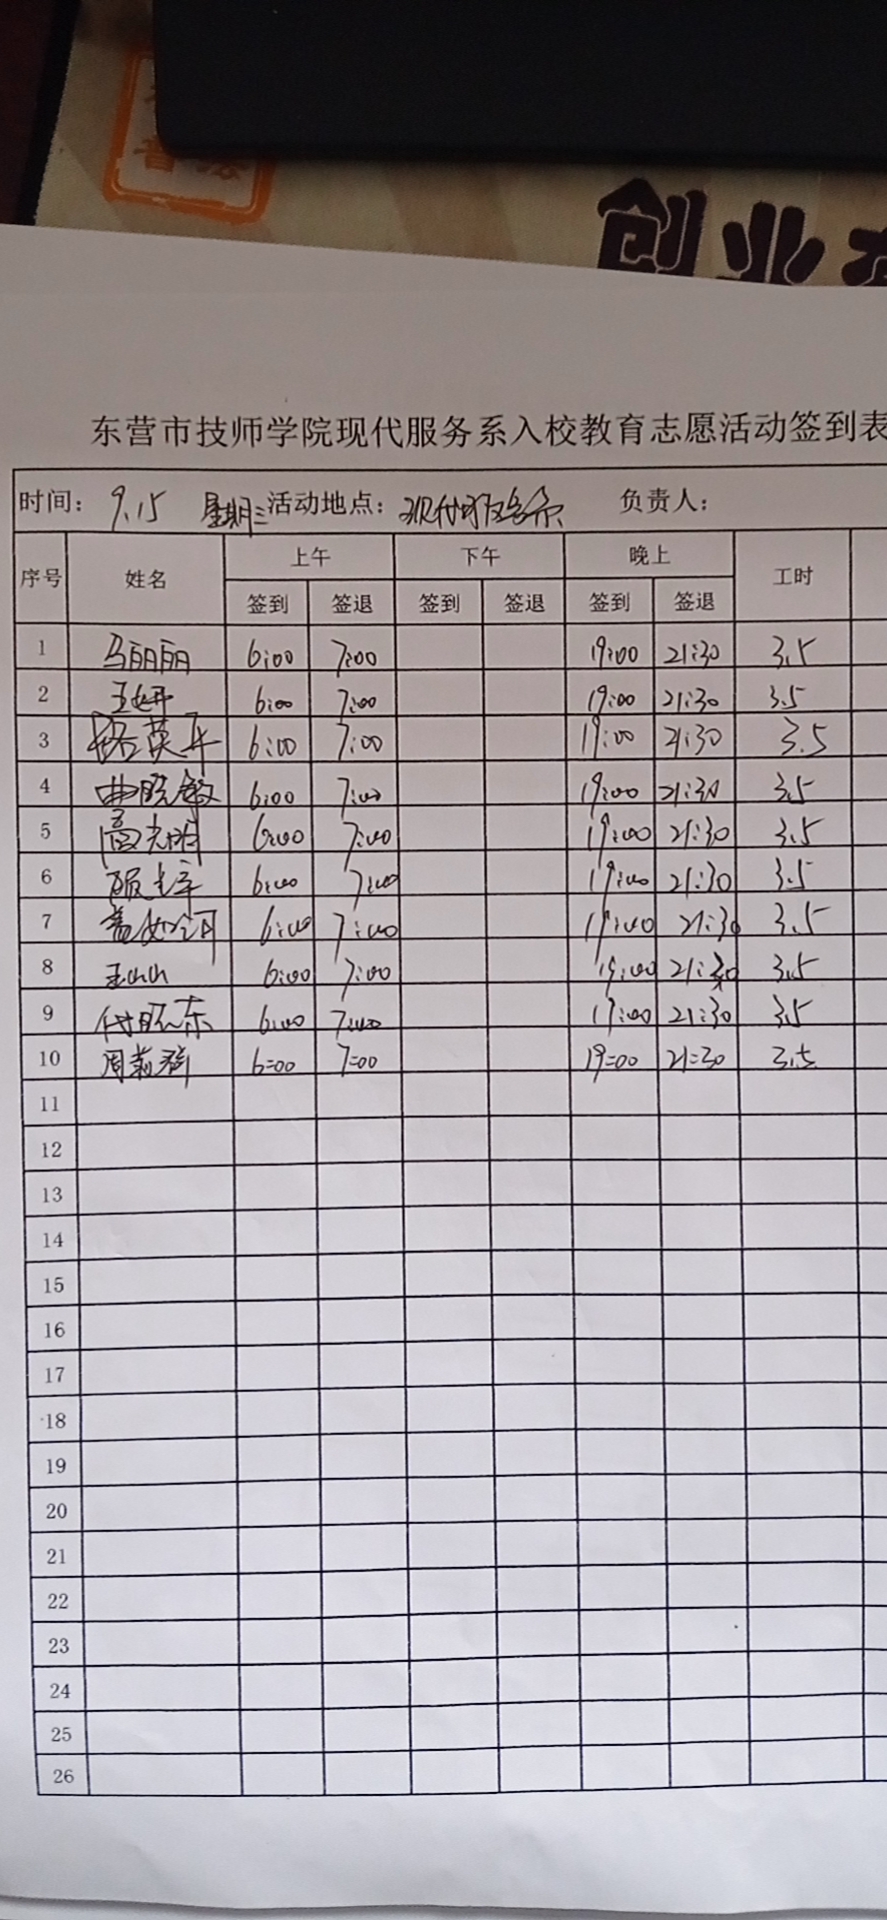 创业
东营市技师学院现代服务系入校教育志愿活动签到表
时间： 9.15 星期三 活动地点： 现代服务系 负责人：
序号 姓名 上午 下午 晚上 工时
签到 签退 签到 签退 签到 签退
1 马丽丽 6:00 7:00 19:00 21:30 3.5
2 王妍 6:00 7:00 19:00 21:30 3.5
3 6:00 7:00 19:00 21:30 3.5
4 曲晓敏 6:00 7:00 19:00 21:30 3.5
5 高光明 6:00 7:00 19:00 21:30 3.5
6 6:00 7:00 19:00 21:30 3.5
7 6:00 7:00 19:00 21:30 3.5
8 王山山 6:00 7:00 19:00 21:30 3.5
9 6:00 7:00 19:00 21:30 3.5
10 6:00 7:00 19:00 21:30 3.5
11
12
13
14
15
16
17
18
19
20
21
22
23
24
25
26